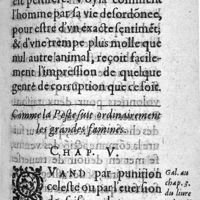 l'homme par sa vie desordonee,
pour estre d'vn exacte sentimét,
& d'vne trempe plus molle que
nul autre animal, reçoit facile-
ment l'impression de quelque
genre de corruption que ce soit.
Comme la Peste suit ordinairement
les grandes famines.
CHAP. V.
QVAND par punition
celeste ou par l'euersion
Gal. au
chap. 3.
du liure